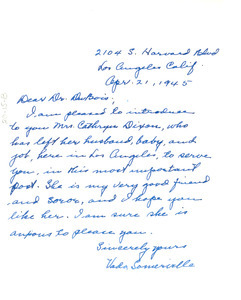 2104 S. Harvard Blvd
Los Angeles Calif.
Apr. 21, 1945
Dear Dr. DuBois:
I am pleased to introduce
to you Mrs. Cathryn Dixon, who
has left her husband, baby, and
job here in Los Angeles, to serve
you, in this most important
post. She is my very good friend
and Soror, and I hope you
like her. I am sure she is
anxous to please you.
Sincerely yours
Vada Somerville